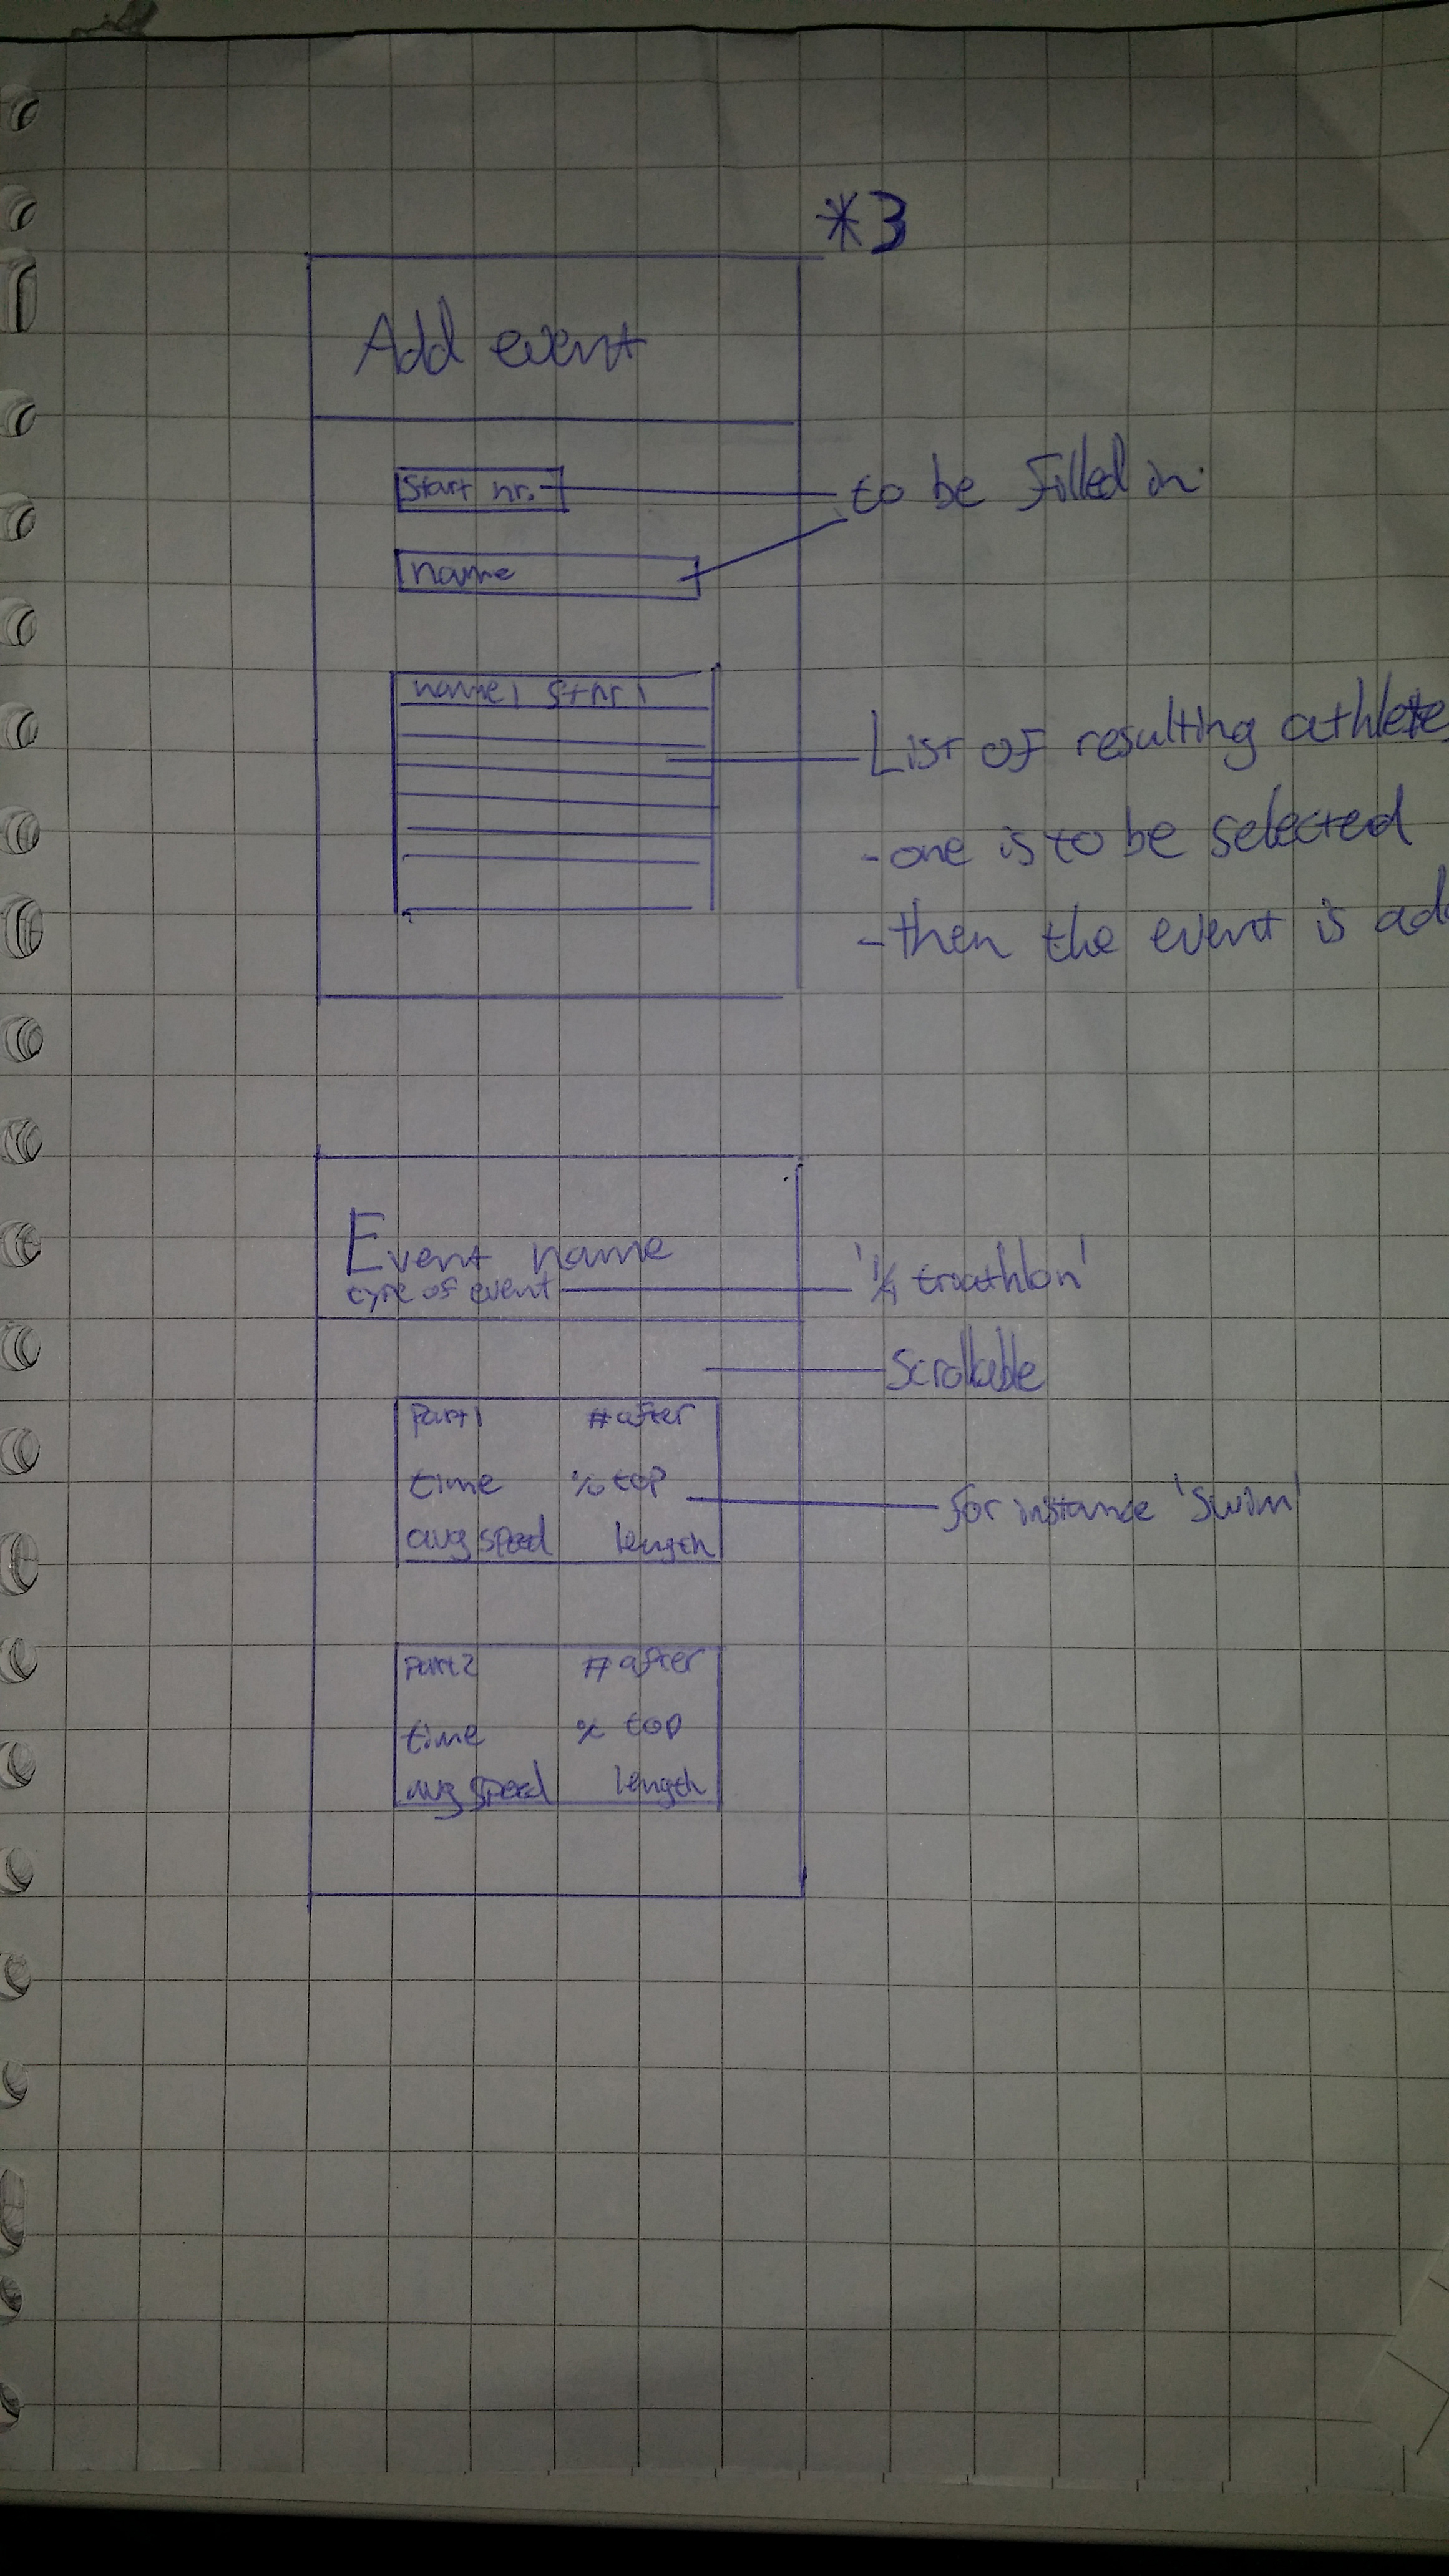 *3
Add event
Start nr.
to be filled in
name
name 1 St nr 1
List of resulting athlete
- one is to be selected
- then the event is ad
Event name
type of event
'1/4 triathlon'
Scrollable
Part 1 # after
time % top
for instance 'swim'
avg speed length
Part 2 # after
time % top
avg speed length